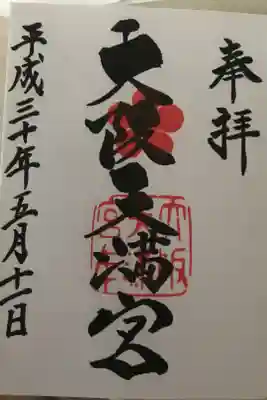 奉拝
大阪天満宮
平成三十年五月十一日